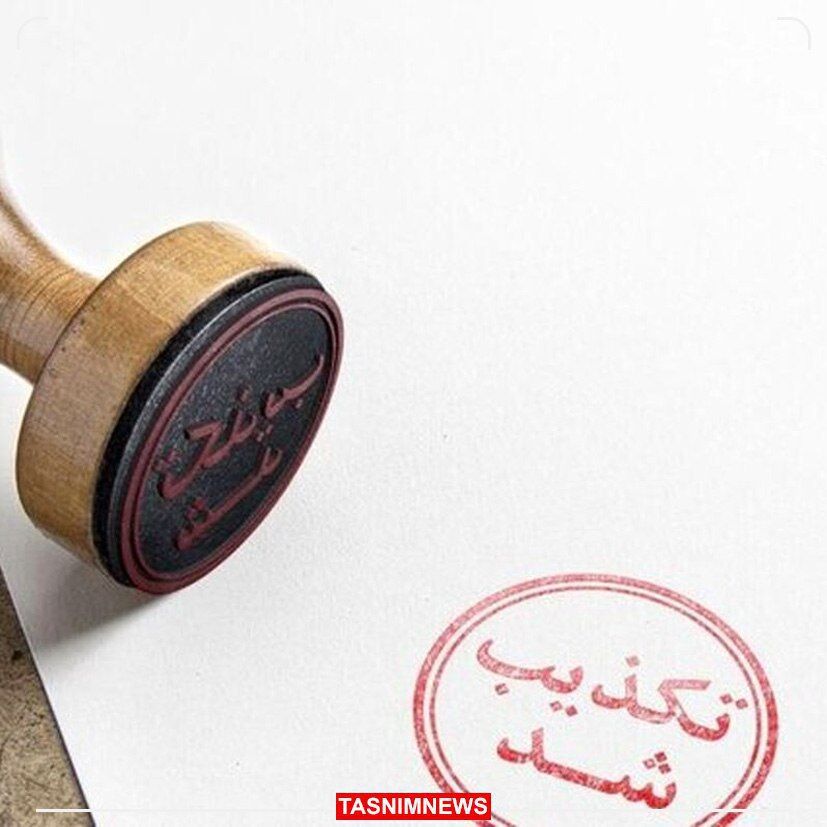 تکذیب
شد
TASNIMNEWS